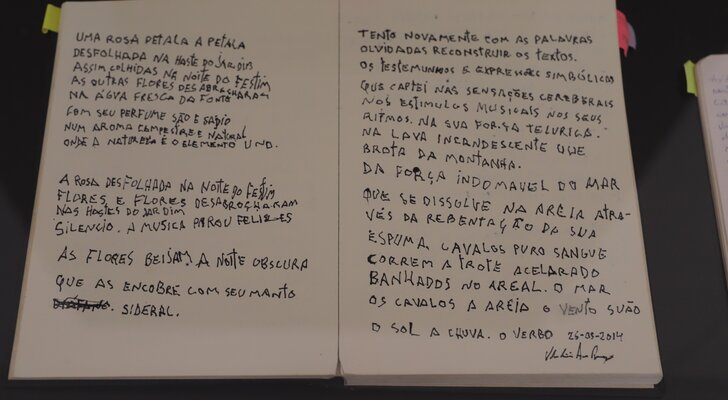 UMA ROSA PETALA A PETALA
DESFOLHADA NA HASTE DO JARDIM
ASSIM COLHIDAS NA NOITE DO FESTIM
AS OUTRAS FLORES DESABROCHARAM
NA ÁGUA FRESCA DA FONTE
COM SEU PERFUME SÃO E SADIO
NUM AROMA CAMPESTRE E NATURAL
ONDE A NATUREZA É O ELEMENTO UNO.
A ROSA DESFOLHADA NA NOITE DO FESTIM
FLORES E FLORES DESABROCHARAM
NAS HASTES DO JARDIM
SILENCIO. A MUSICA PAROU FELIZES
AS FLORES BEIJAM. A NOITE OBSCURA
QUE AS ENCOBRE COM SEU MANTO
. SIDERAL.
TENTO NOVAMENTE COM AS PALAVRAS
OLVIDADAS RECONSTRUIR OS TEXTOS.
OS TESTEMUNHOS E EXPRESSÕES SIMBÓLICOS
QUE CAPTEI NAS SENSAÇÕES CEREBRAIS
NOS ESTIMULOS MUSICAIS NOS SEUS
RITMOS. NA SUA FORÇA TELURICA.
NA LAVA INCANDESCENTE QUE
BROTA DA MONTANHA.
DA FORÇA INDOMAVEL DO MAR
QUE SE DISSOLVE NA AREIA ATRA-
VÉS DA REBENTAÇÃO DA SUA
ESPUMA. CAVALOS PURO SANGUE
CORREM A TROTE ACELARADO
BANHADOS NO AREAL. O MAR
OS CAVALOS A AREIA O VENTO SUÃO
O SOL A CHUVA. O VERBO 26-05-2014